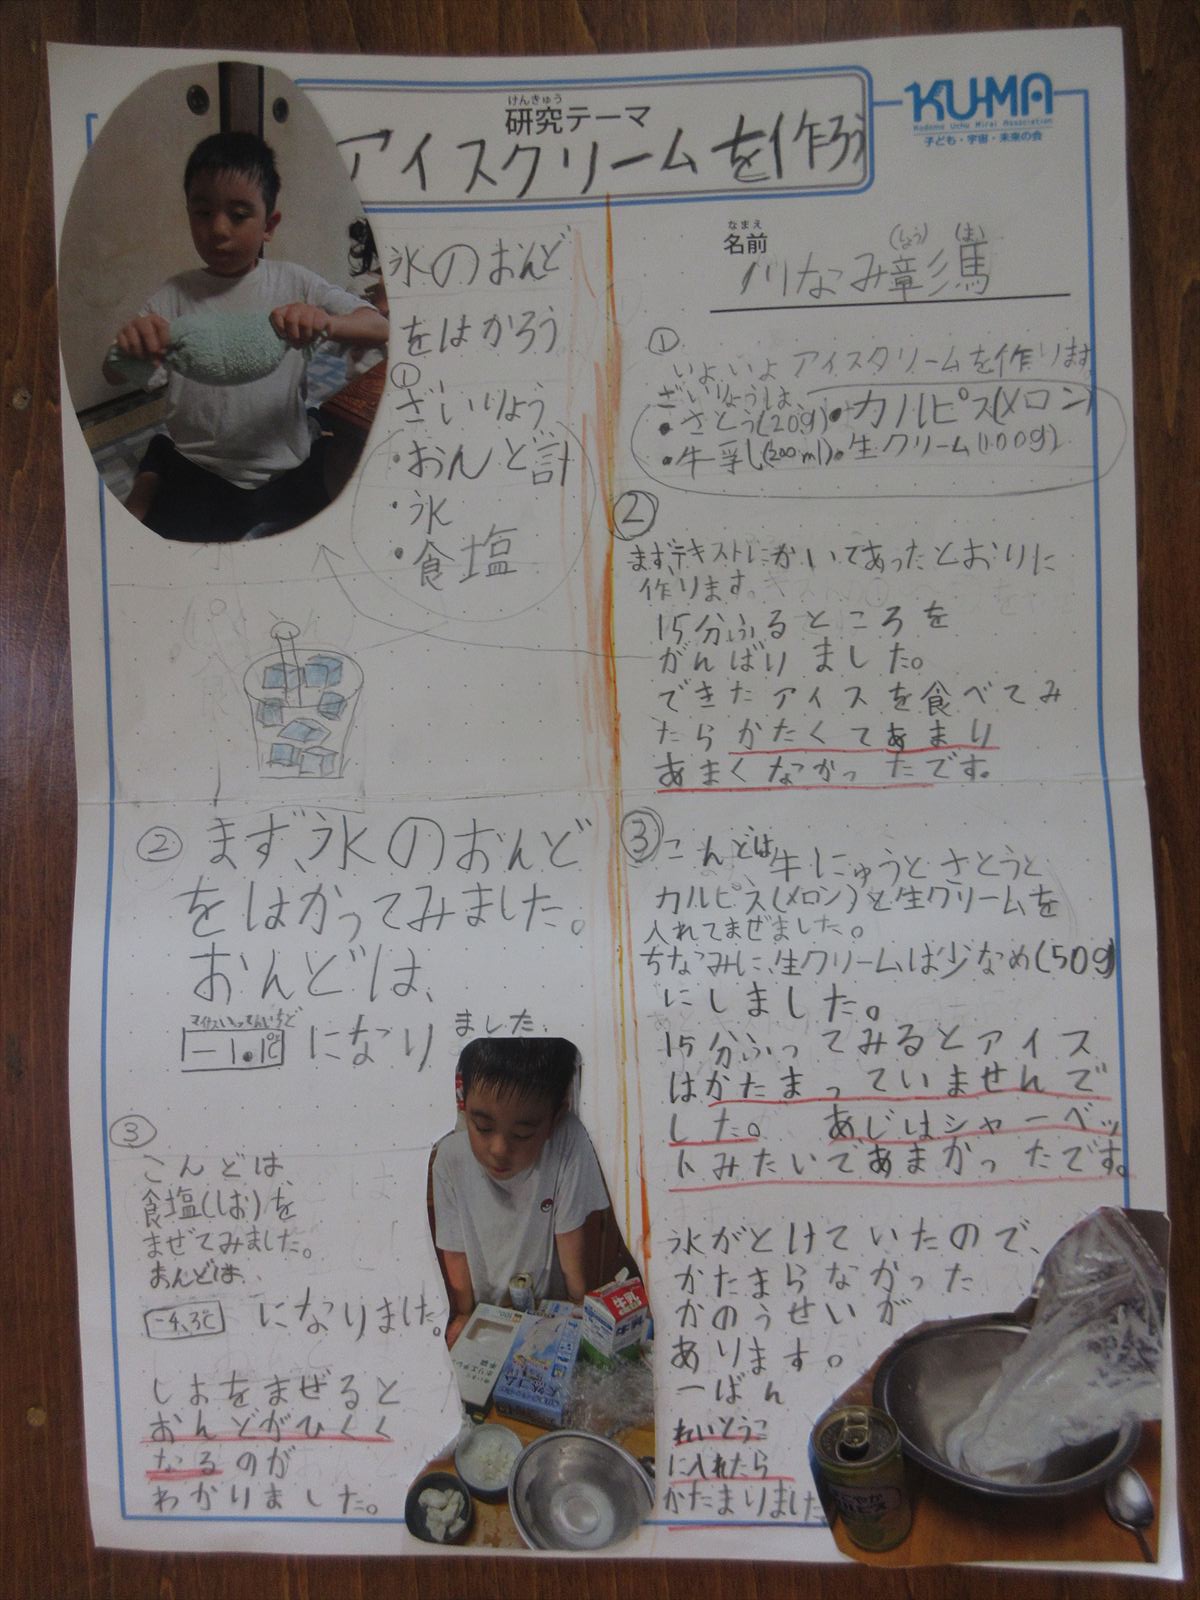 けんきゅう
研究テーマ
アイスクリームを作ろう
KUMA
Kodomo Uchu Mirai Association
子ども・宇宙・未来の会
なまえ
名前
(しょう) (ま)
川なみ 彰馬
氷のおんど
をはかろう
①
ざいりょう
・おんど計
・氷
・食塩
② まず、氷のおんど
をはかってみました。
おんどは、
マイナスいってんいちど
-1.1℃ になり ました。
③
こんどは、
食塩(しお)を
まぜてみました。
おんどは、
-4.3℃ になりました。
しおをまぜると
おんどがひくく
なるのが
わかりました。
①
いよいよ アイスクリームを作ります
ざいりょうは、
・さとう(20g)・カルピス(メロン)
・牛乳(200ml)・生クリーム(100g)
②
まず、テキストにかいてあったとおりに
作ります。
15分ふるところを
がんばりました。
できたアイスを食べてみ
たらかたくてあまり
あまくなかったです。
③ こんどは牛にゅうとさとうと
カルピス(メロン)と生クリームを
入れてまぜました。
ちなみに、生クリームは少なめ(50g)
にしました。
15分ふってみるとアイス
はかたまっていませんで
した。 あじはシャーベッ
トみたいであまかったです。
氷がとけていたので、
かたまらなかった
かのうせいが
あります。
一ばん
れいとうこ
に入れたら
かたまりました
牛乳
天然ゴム